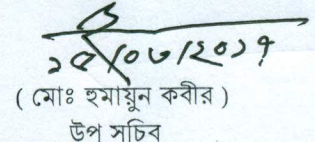 ১৫/০৬/২০১৭
( মোঃ হুমায়ুন কবীর )
উপ সচিব